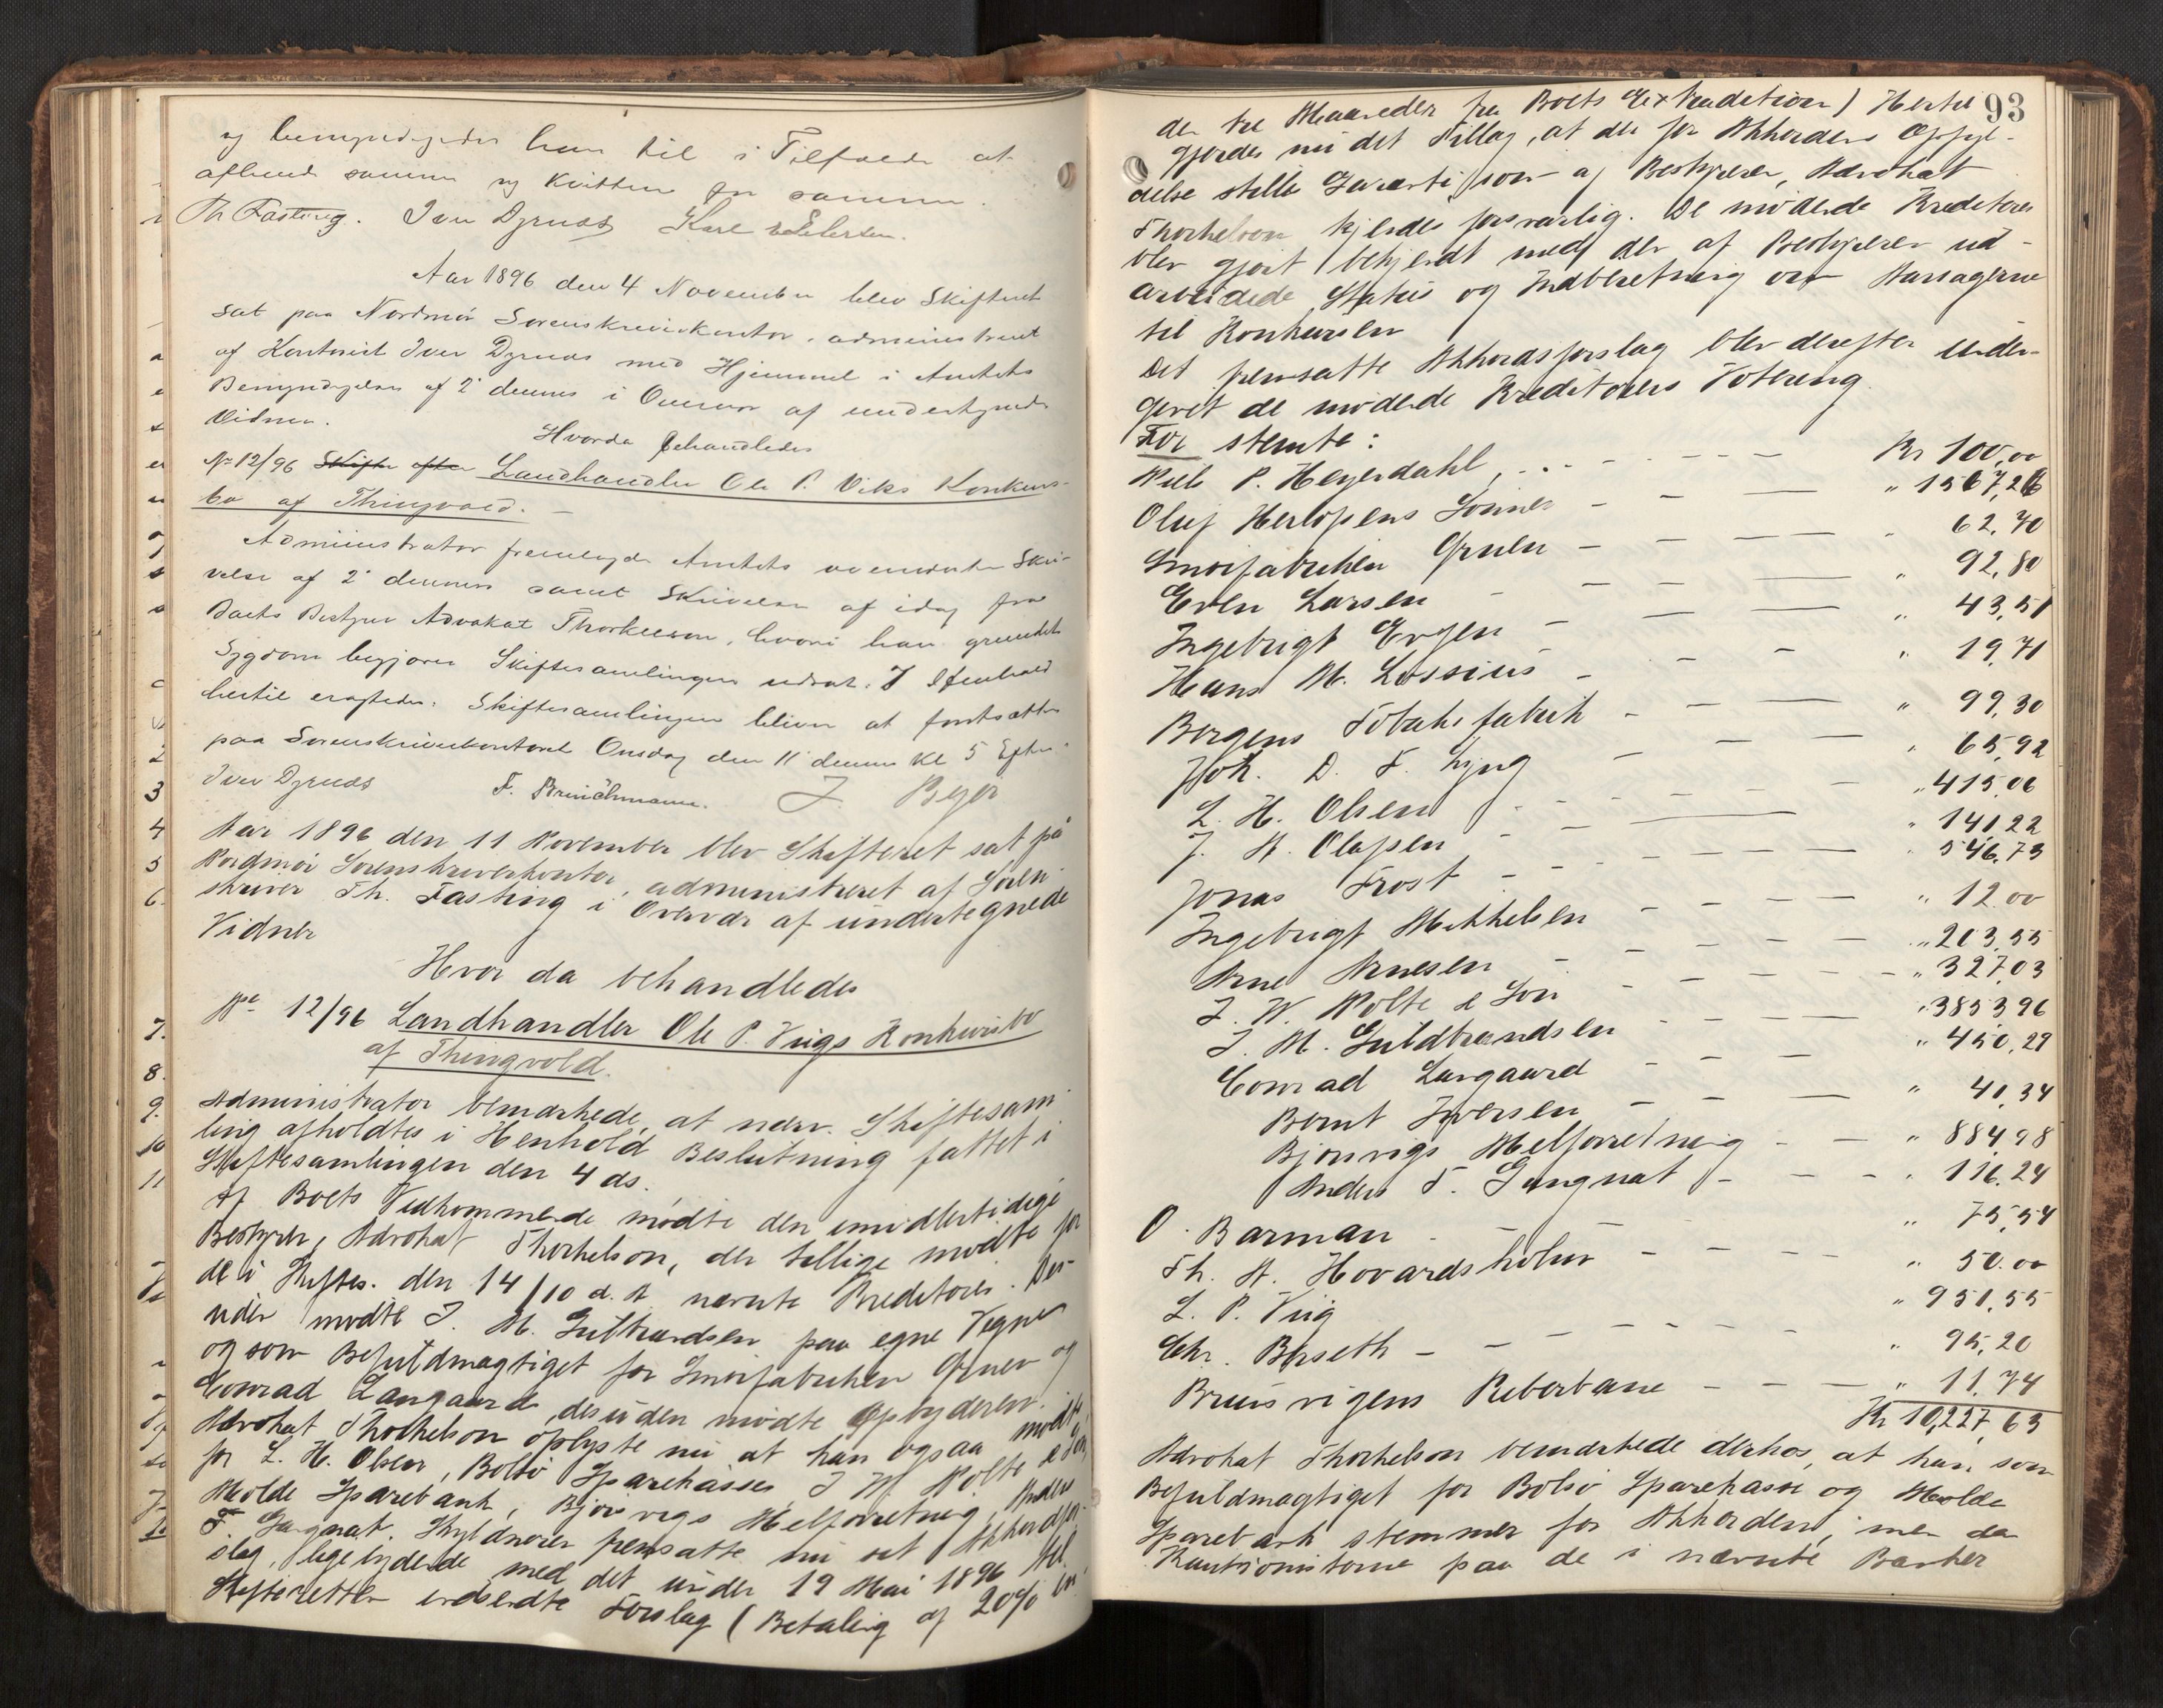 og bemyndigedes han til i Tilfælde at
afhænde samme og kvittere for samme.
Th Fasting. Iver Dyrnas Karl Eilertsen.
Aar 1896 den 4 November blev Skifteret
sat paa Nordmør Sorenskriverkontor, administreret
af Kontorist Iver Dyrnas med Hjemmel i Amtets
Bemyndigelse af 2' dennes i Overvær af undertegnede
Vidner.
Hvorda behandledes
No 12/96 Skifte efter Landhandler Ole P. Viks Konkurs-
bo af Thingvold.
Administrator fremlagde Amtets ovennævnte Skri-
velse af 2' dennes samt Skrivelse af idag fra
Boets Bestyrer Advokat Thorkelson, hvori han grundet
Sygdom begjærer Skiftesamlingen udsat. I Henhold
hertil eragtedes: Skiftesamlingen bliver at fortsætte
paa Sorenskriverkontoret Onsdag den 11' dennes Kl 5 Efterm.
Iver Dyrnas F. Brinchmann. J. Beyer
Aar 1896 den 11 November blev Skifteret sat på
Nordmør Sorenskriverkontor, administreret af Soren-
skriver Th. Fasting i Overvær af undertegnede
Vidner
Hvor da behandledes
No 12/96 Landhandler Ole P. Viigs Konkursbo
af Thingvold.
Administrator bemærkede, at nærv. Skiftesam
ling afholdtes i Henhold Beslutning fattet i
Skiftesamlingen den 4 ds.
Af Boets Vedkommende mødte den imidlertidige
Bestyrer, Advokat Thorkelson, der tillige mødte for
de i Skiftes. den 14/10 d. A nævnte Kreditorer. Des-
uden mødte J. M. Guldbrandsen paa egne Vegne
og som Befuldmægtiget for Smørfabriken Gruen og
Conrad Langaard, desuden mødte Opbyderen.
Advokat Thorkelson oplyste nu at han ogsaa mødte
for L. H. Olsen, Bolsø Sparekasse, J W Nolte & Søn,
Molde Sparebank, Bjørvigs Melforretning, Anders
F. Gangnat. Skyldneren fremsatte nu sit Akkordfor-
slag, ligelydende med det under 19 Mai 1896 til
Skifteretten indsendte Forslag (Betaling af 20% in-
93
den tre Maaneder fra Boets Extradition) Hertil
gjordes nu det Tillæg, at der for Akkordens Opfyl-
delse stilles Garanti som af Bestyrer, Advokat
Thorkelson kjendes forsvarlig. De mødende Kreditorer
blev gjort bekjendt med den af Bestyreren ud-
arbeidede Status og Indberetning om Aarsagerne
til Konkursen
Det fremsatte Akkordsforslag blev derefter under-
givet de mødende Kreditorers Votering.
For stemte:
Niels P. Heyerdahl, Kr 100,00
Oluf Herlofsens Sønner " 1567,26
Smørfabriken Gruen " 62,70
Even Larsen " 92,80
Ingebrigt Evjen " 43,51
Hans M. Lossius " 19,71
Bergens Tobaksfabrik " 99,30
Joh. D. F. Lyng " 65,92
L. H. Olsen " 415,06
J. A. Olafsen " 141,22
Jonas Frost " 546,73
Ingebrigt Mikkelsen " 12.00
Arne Arnesen " 203,55
J. W. Nolte & Søn " 327,03
J. M. Guldbrandsen " 3853,96
Conrad Langaard " 450,29
Bernt Iversen " 41,34
Bjørvigs Melforretning " 884,98
Anders F. Gangnat " 116.24
O. Barman " 75,54
Th. A. Hovardsholm " 50.00
L. P. Viig " 951,55
Chr. Børseth " 95,20
Bruusvigens Reberbane " 11,74
Kr 10,227,63
Advokat Thorkelson bemærkede derhos, at han som
Befuldmægtiget for Bolsø Sparekasse og Molde
Sparebank stemmer for Akkorden, men da
Kautionisterne paa de i nævnte Banker